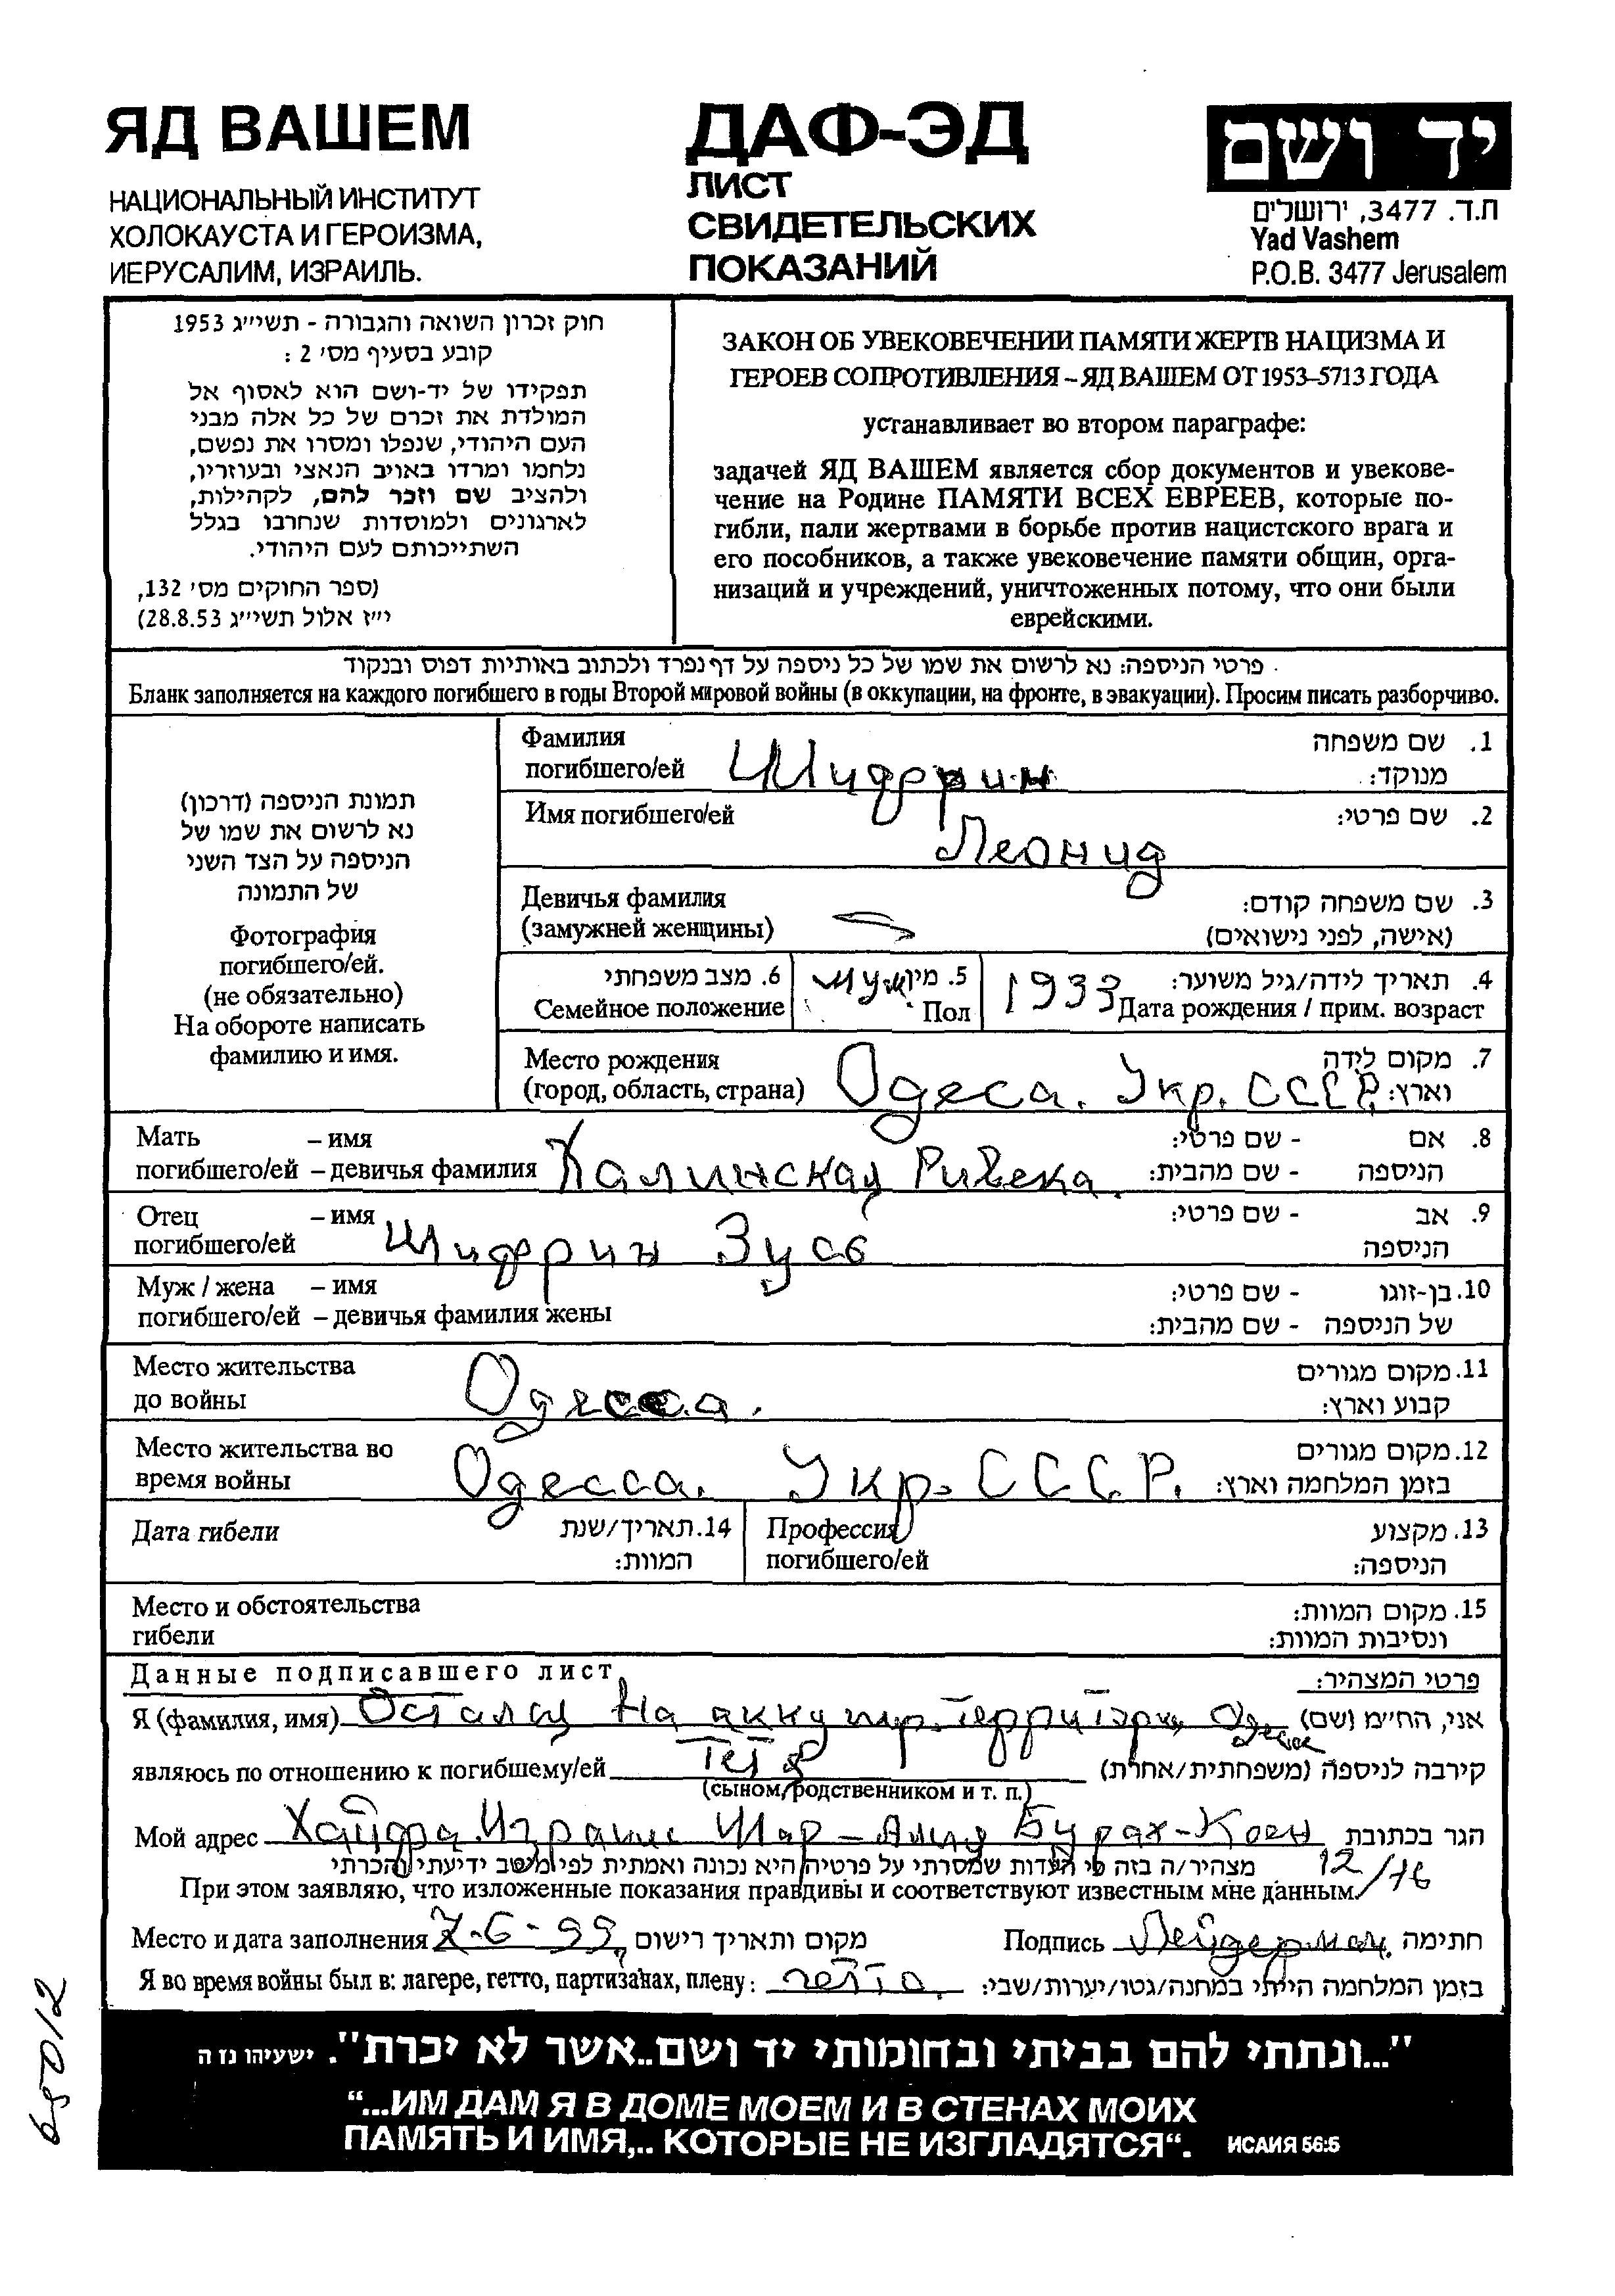 ЯД ВАШЕМ
НАЦИОНАЛЬНЫЙ ИНСТИТУТ
ХОЛОКАУСТА И ГЕРОИЗМА,
ИЕРУСАЛИМ, ИЗРАИЛЬ.
ДАФ-ЭД
ЛИСТ
СВИДЕТЕЛЬСКИХ
ПОКАЗАНИЙ
יד ושם
ת.ד. 3477, ירושלים
Yad Vashem
P.O.B. 3477 Jerusalem
חוק זכרון השואה והגבורה - תשי״ג 1953
קובע בסעיף מס׳ 2 :
תפקידו של יד-ושם הוא לאסוף אל
המולדת את זכרם של כל אלה מבני
העם היהודי, שנפלו ומסרו את נפשם,
נלחמו ומרדו באויב הנאצי ובעוזריו,
ולהציב שם וזכר להם, לקהילות,
לארגונים ולמוסדות שנחרבו בגלל
השתייכותם לעם היהודי.
(ספר החוקים מס׳ 132,
י״ז אלול תשי״ג 28.8.53)
ЗАКОН ОБ УВЕКОВЕЧЕНИИ ПАМЯТИ ЖЕРТВ НАЦИЗМА И
ГЕРОЕВ СОПРОТИВЛЕНИЯ – ЯД ВАШЕМ ОТ 1953–5713 ГОДА
устанавливает во втором параграфе:
задачей ЯД ВАШЕМ является сбор документов и увекове-
чение на Родине ПАМЯТИ ВСЕХ ЕВРЕЕВ, которые по-
гибли, пали жертвами в борьбе против нацистского врага и
его пособников, а также увековечение памяти общин, орга-
низаций и учреждений, уничтоженных потому, что они были
еврейскими.
פרטי הניספה: נא לרשום את שמו של כל ניספה על דף נפרד ולכתוב באותיות דפוס ובנקוד
Бланк заполняется на каждого погибшего в годы Второй мировой войны (в оккупации, на фронте, в эвакуации). Просим писать разборчиво.
תמונת הניספה (דרכון)
נא לרשום את שמו של
הניספה על הצד השני
של התמונה
Фотография
погибшего/ей.
(не обязательно)
На обороте написать
фамилию и имя.
Фамилия 1. שם משפחה
погибшего/ей Шифрин מנוקד:
Имя погибшего/ей 2. שם פרטי:
Леонид
Девичья фамилия 3. שם משפחה קודם:
(замужней женщины) (אישה, לפני נישואים)
6. מצב משפחתי 5. מין муж 1933 4. תאריך לידה/גיל משוער:
Семейное положение Пол Дата рождения / прим. возраст
Место рождения 7. מקום לידה
(город, область, страна) Одеса. Укр. СССР. וארץ:
Мать – имя 8. אם - שם פרטי:
погибшего/ей – девичья фамилия Халинская Ривека. הניספה - שם מהבית:
Отец – имя 9. אב - שם פרטי:
погибшего/ей Шифрин Зусь הניספה
Муж / жена – имя 10. בן-זוגו - שם פרטי:
погибшего/ей – девичья фамилия жены של הניספה - שם מהבית:
Место жительства 11. מקום מגורים
до войны Одесса. קבוע וארץ:
Место жительства во 12. מקום מגורים
время войны Одесса. Укр. СССР. בזמן המלחמה וארץ:
Дата гибели 14. תאריך/שנת Профессия 13. מקצוע
המוות: погибшего/ей הניספה:
Место и обстоятельства 15. מקום המוות:
гибели ונסיבות המוות:
Данные подписавшего лист פרטי המצהיר:
Я (фамилия, имя) На אני, החי״מ (שם)
являюсь по отношению к погибшему/ей Тетя קירבה לניספה (משפחתית/אחרת)
(сыном, родственником и т. п.)
Мой адрес Хайфа. Шар-Алия Бурах-Коен הגר בכתובת
מצהיר/ה בזה כי העדות שמסרתי על פרטיה היא נכונה ואמתית לפי מיטב ידיעתי והכרתי 12/16
При этом заявляю, что изложенные показания правдивы и соответствуют известным мне данным.
Место и дата заполнения 7-6-99 מקום ותאריך רישום Подпись Лейдерман חתימה
Я во время войны был в: лагере, гетто, партизанах, плену: гетто. בזמן המלחמה הייתי במחנה/גטו/יערות/שבי:
"...ונתתי להם בביתי ובחומותי יד ושם..אשר לא יכרת". ישעיהו נז ה
“...ИМ ДАМ Я В ДОМЕ МОЕМ И В СТЕНАХ МОИХ
ПАМЯТЬ И ИМЯ,.. КОТОРЫЕ НЕ ИЗГЛАДЯТСЯ“. ИСАИЯ 56:5